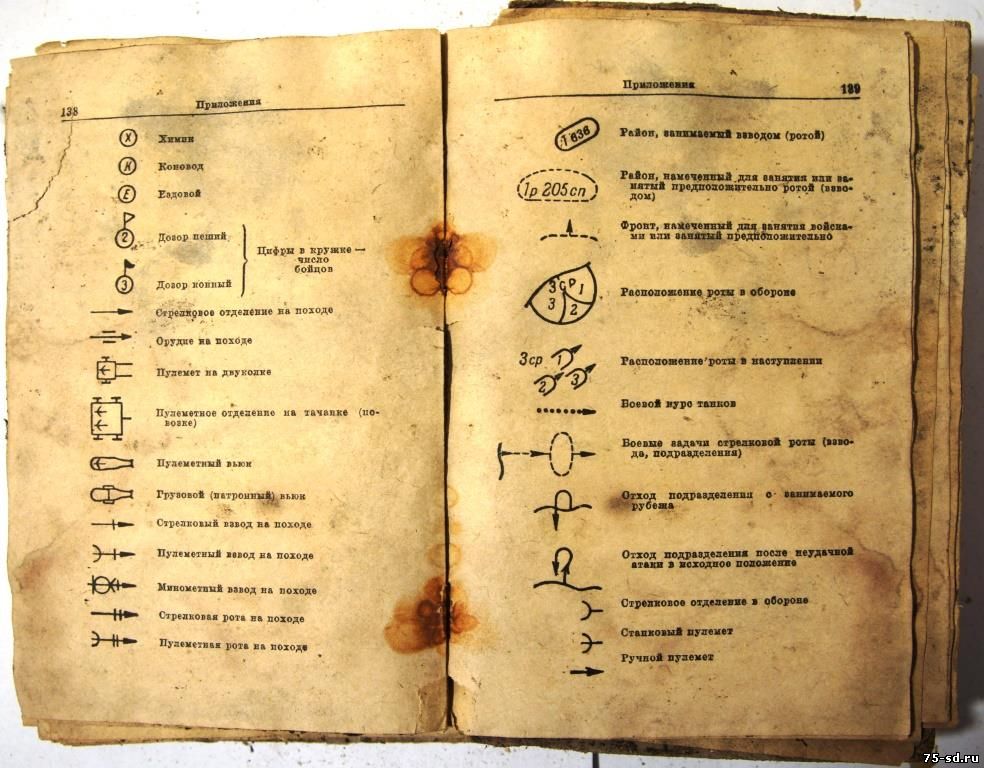 138 Приложения
Х Химик
К Коновод
Е Ездовой
2 Дозор пеший
Цифры в кружке —
число
бойцов
3 Дозор конный
Стрелковое отделение на походе
Орудие на походе
Пулемет на двуколке
Пулеметное отделение на тачанке (по-
возке)
Пулеметный вьюк
Грузовой (патронный) вьюк
Стрелковый взвод на походе
Пулеметный взвод на походе
Минометный взвод на походе
Стрелковая рота на походе
Пулеметная рота на походе
Приложения 139
Район, занимаемый взводом (ротой)
1р 205сп Район, намеченный для занятия или за-
нятый предположительно ротой (взво-
дом)
Фронт, намеченный для занятия войска-
ми или занятый предположительно
3ср 1 2 3 Расположение роты в обороне
3ср 1 2 3 Расположение роты в наступлении
Боевой курс танков
Боевые задачи стрелковой роты (взво-
да, подразделения)
Отход подразделения с занимаемого
рубежа
Отход подразделения после неудачной
атаки в исходное положение
Стрелковое отделение в обороне
Станковый пулемет
Ручной пулемет
75-sd.ru